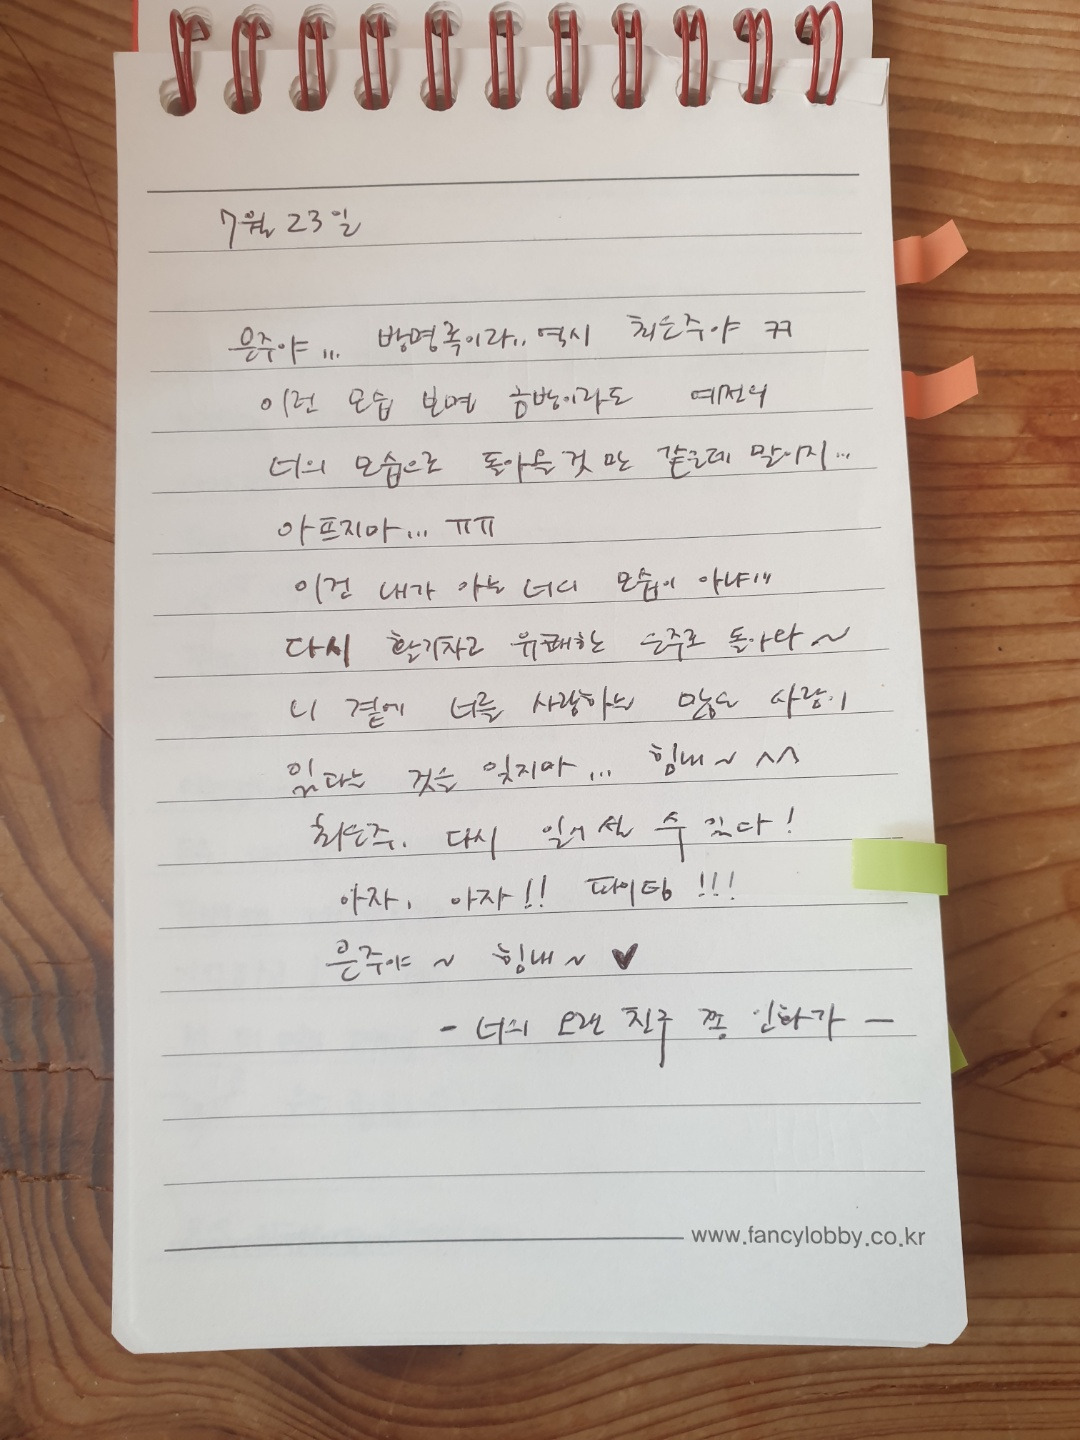 7월 23일
은주야... 방명록이라.. 역시 최은주야 ㅋㅋ
이런 모습 보면 금방이라도 예전의
너의 모습으로 돌아올 것만 같은데 말이지...
아프지마... ㅠㅠ
이건 내가 아는 너의 모습이 아냐!!
다시 활기차고 유쾌한 은주로 돌아와~
니 곁에 너를 사랑하는 많은 사람이
있다는 것을 잊지마... 힘내~ ^^
최은주. 다시 일어설 수 있다!
아자, 아자!! 파이팅!!!
은주야~ 힘내~ ♥
- 너의 오랜 친구 쫑 인화가 -
www.fancylobby.co.kr